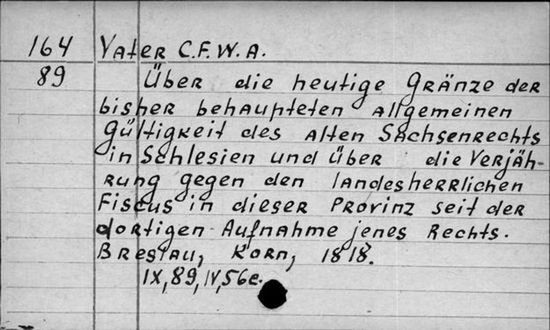 164 Vater C.F.W.A.
89 Über die heutige Gränze der
bisher behaupteten allgemeinen
Gültigkeit des alten Sachsenrechts
in Schlesien und über die Verjäh-
rung gegen den landesherrlichen
Fiscus in dieser Provinz seit der
dortigen Aufnahme jenes Rechts.
Breslau, Korn, 1818.
IX, 89, IV, 56c.